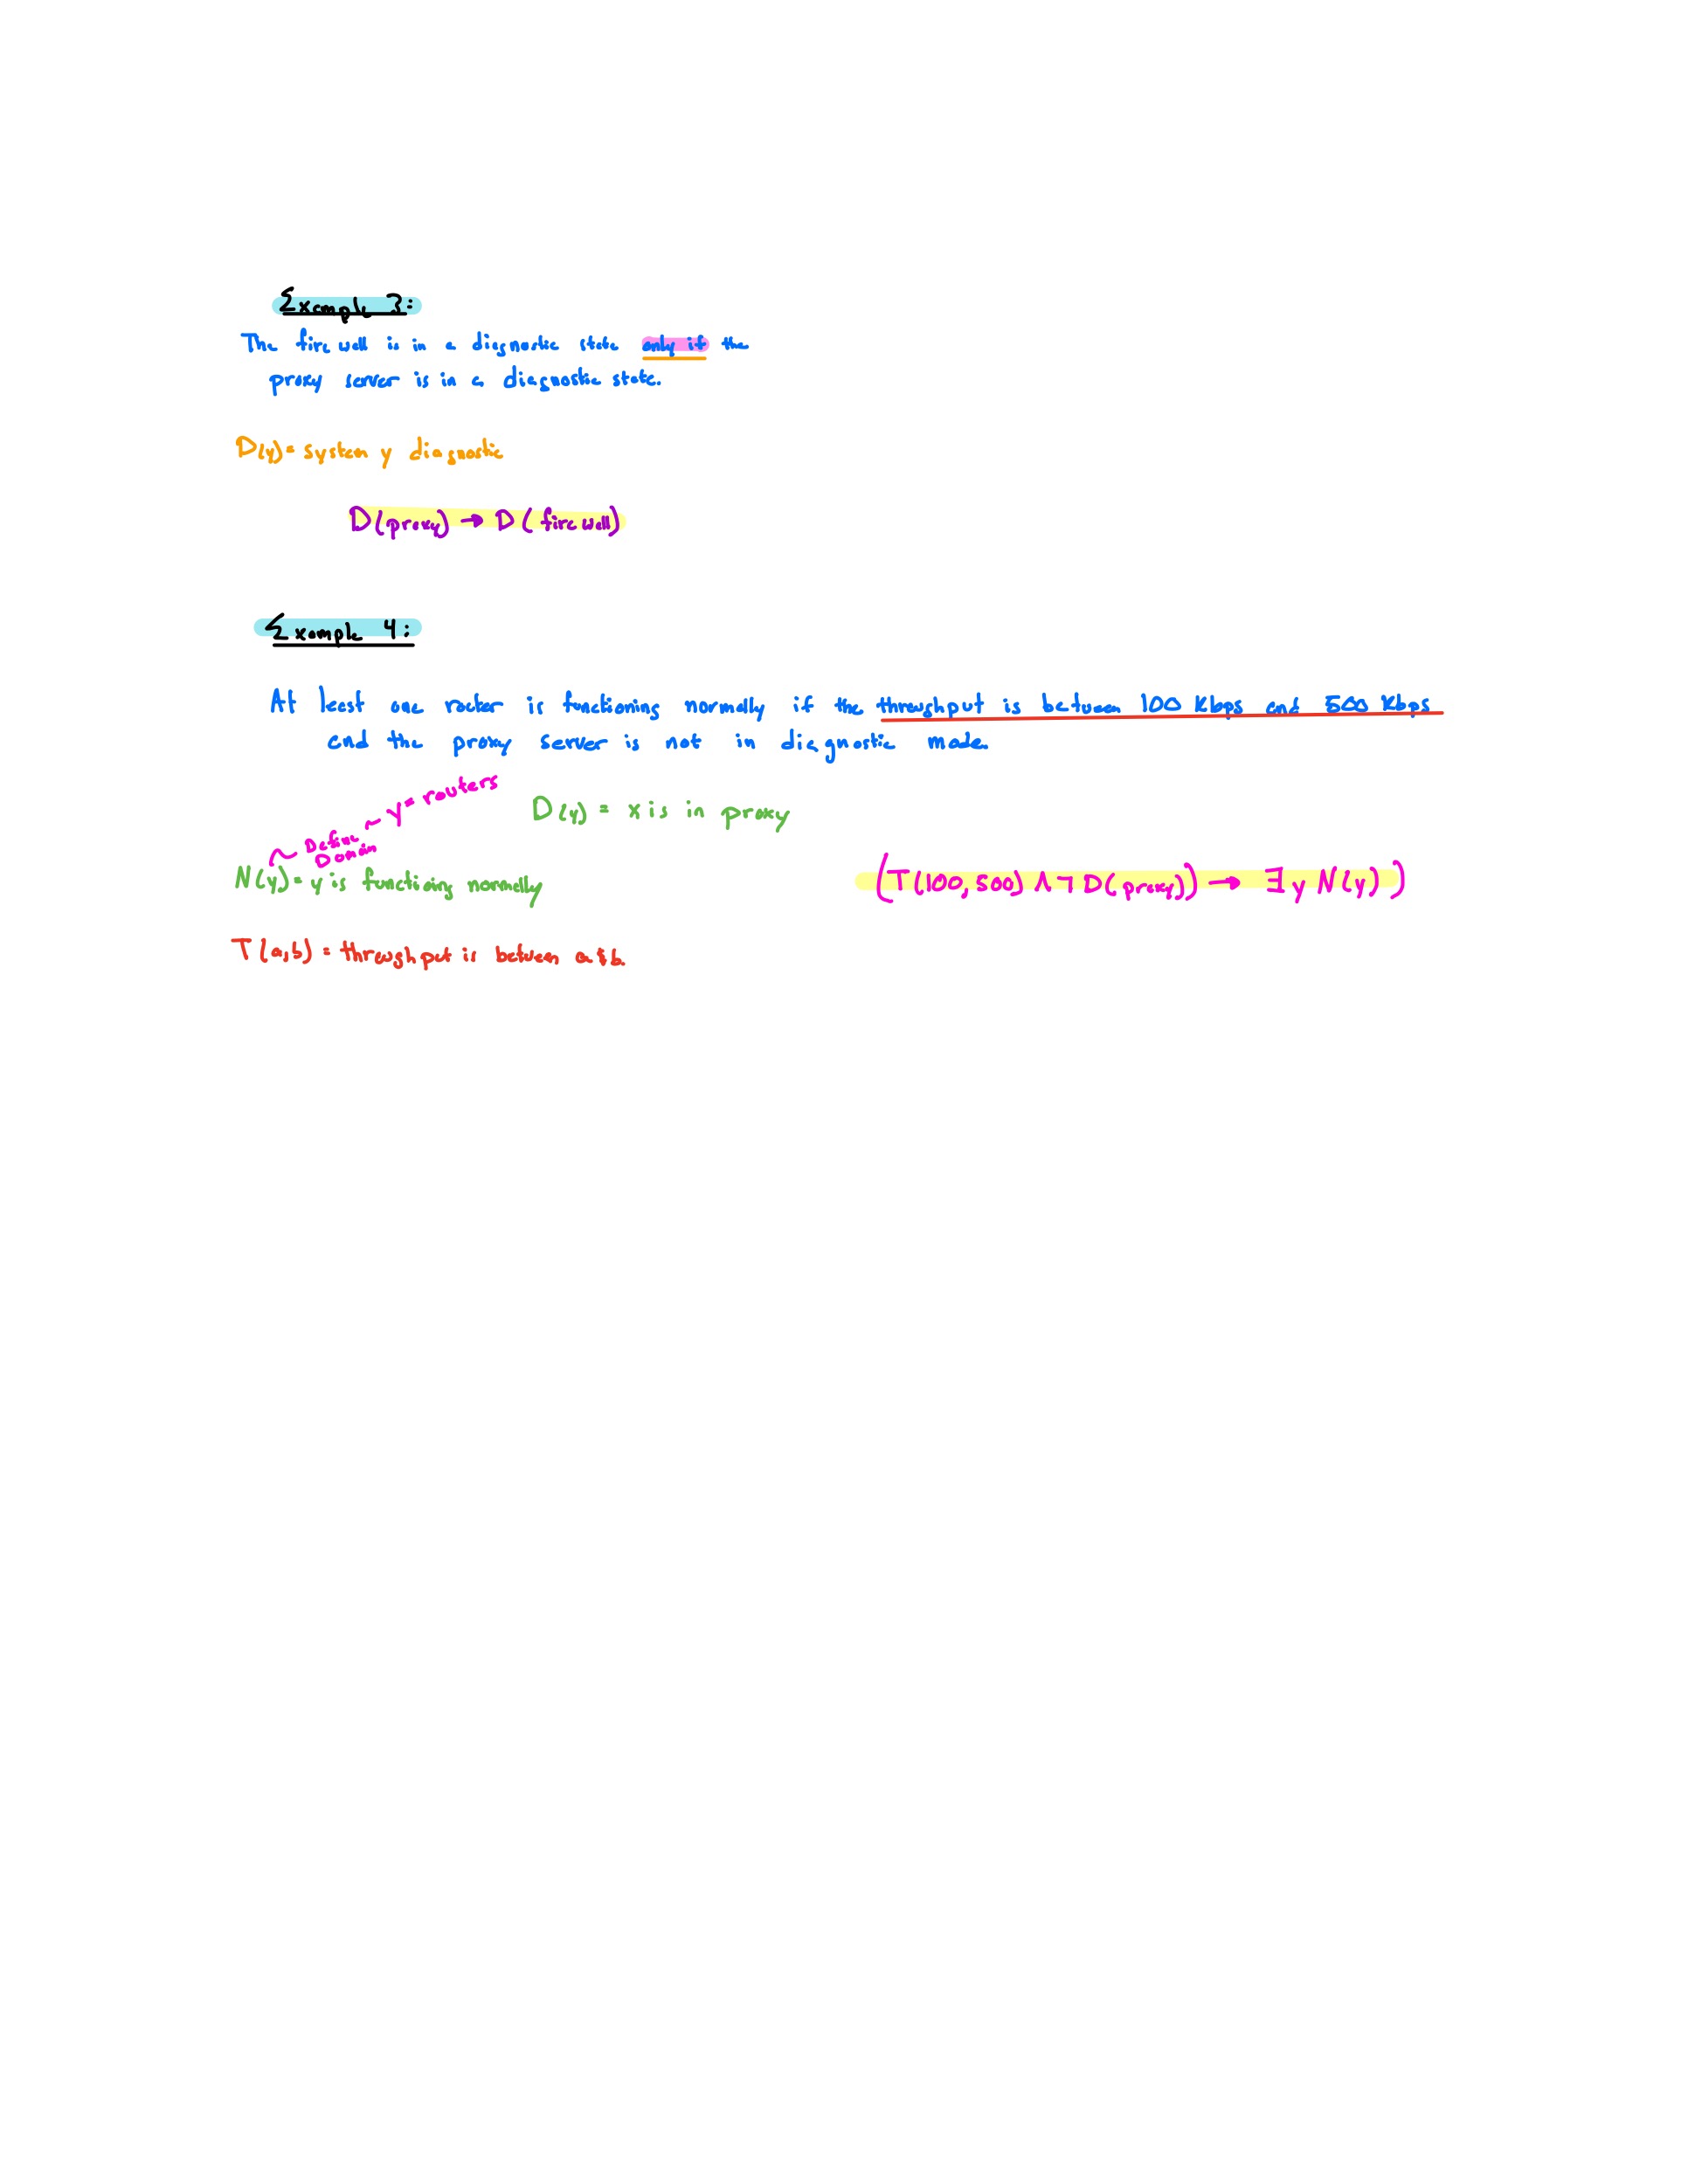 Example 3:
The firewall is in a diagnostic state only if the
proxy server is in a diagnostic state.
D(y) = system y diagnostic
D(proxy) → D(firewall)
Example 4:
At least one router is functioning normally if the throughput is between 100 Kbps and 500 Kbps
and the proxy server is not in diagnostic mode.
Define Domain ~ Y = routers
D(y) = x is in proxy
N(y) = y is functioing normally
(T(100, 500) ∧ ¬ D(proxy)) → ∃ y N(y))
T(a,b) = throughput is between a & b.